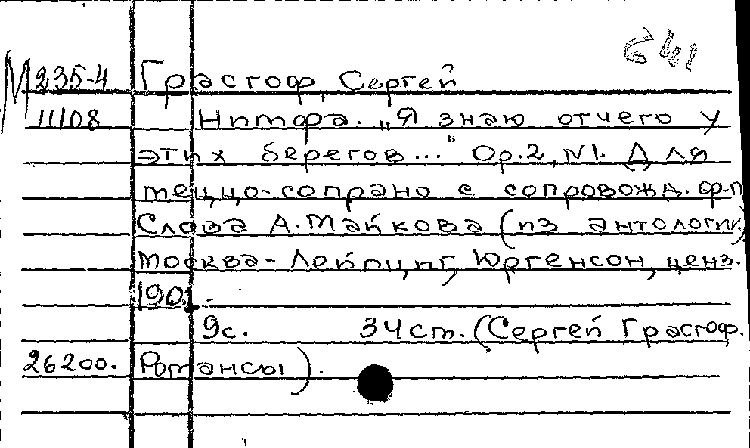 641
М 235-4 Грасгоф, Сергей
11108 Нимфа. „Я знаю отчего у
этих берегов..." Op.2, N1. Для
меццо-сопрано с сопровожд. ф-п
Слова А. Майкова (из антологии)
Москва-Лейпциг, Юргенсон, ценз.
1901.
9с. 34см. (Сергей Грасгоф.
26200. Романсы).